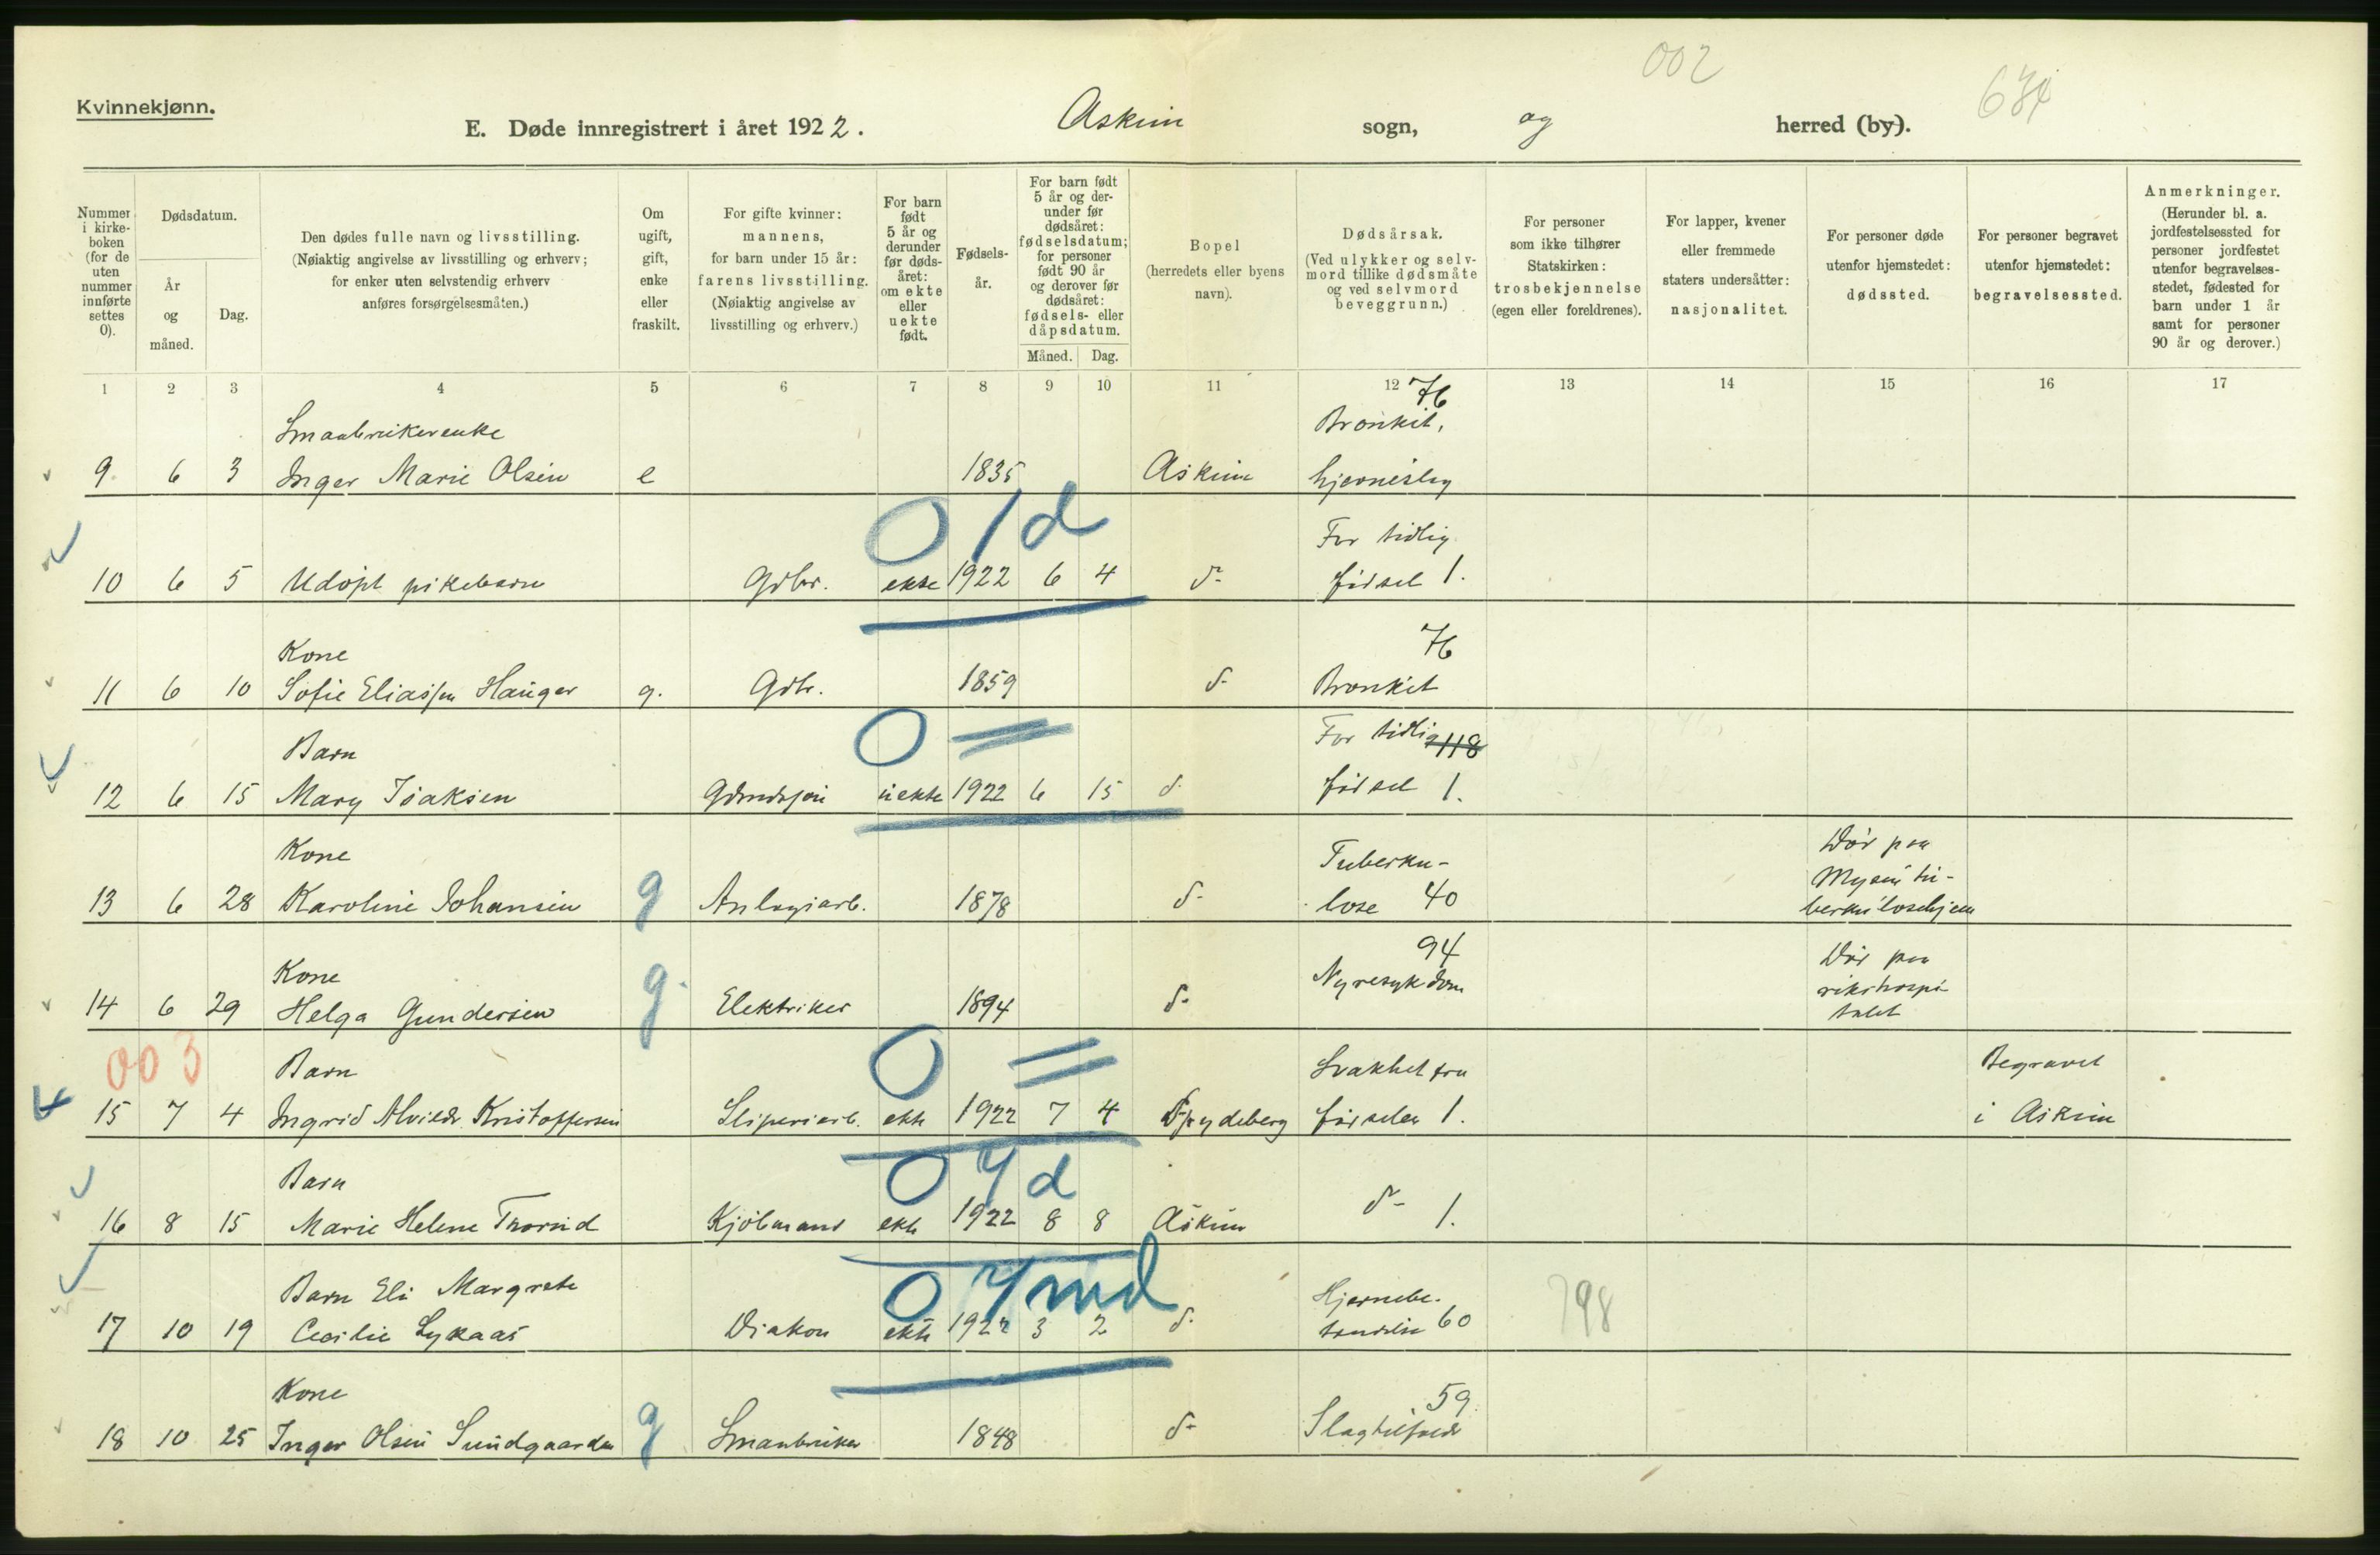 002
Kvinnekjønn.
E. Døde innregistrert i året 1922. Askim sogn, og herred (by).
Nummer i kirke-boken (for de uten nummer innførte settes 0).
Dødsdatum.
År og måned.
Dag.
Den dødes fulle navn og livsstilling.
(Nøiaktig angivelse av livsstilling og erhverv;
for enker uten selvstendig erhverv
anføres forsørgelsesmåten.)
Om ugift, gift, enke eller fraskilt.
For gifte kvinner:
mannens,
for barn under 15 år:
farens livsstilling.
(Nøiaktig angivelse av
livsstilling og erhverv.)
For barn født 5 år og derunder før døds-året: om ekte eller uekte født.
Fødsels-år.
For barn født 5 år og der-under før dødsåret: fødselsdatum; for personer født 90 år og derover før dødsåret: fødsels- eller dåpsdatum.
Måned. Dag.
Bopel
(herredets eller byens
navn).
Dødsårsak.
(Ved ulykker og selv-
mord tillike dødsmåte
og ved selvmord
beveggrunn.)
For personer
som ikke tilhører
Statskirken:
trosbekjennelse
(egen eller foreldrenes).
For lapper, kvener
eller fremmede
staters undersåtter:
nasjonalitet.
For personer døde
utenfor hjemstedet:
dødssted.
For personer begravet
utenfor hjemstedet:
begravelsessted.
Anmerkninger.
(Herunder bl. a.
jordfestelsessted for
personer jordfestet
utenfor begravelses-
stedet, fødested for
barn under 1 år
samt for personer
90 år og derover.)
1 2 3 4 5 6 7 8 9 10 11 12 13 14 15 16 17
Smaabrukerenke 76 Bronkit,
9 6 3 Inger Marie Olsen e 1835 Askim hjerneslag
0 1d For tidlig
10 6 5 Udøpt pikebarn Gdbr. ekte 1922 6 4 d- fødsel 1.
Kone 76
11 6 10 Sofie Eliassen Hauger g. Gdbr. 1859 d- Bronkit
Barn 0 = For tidlig 118
12 6 15 Mary Isaksen uekte 1922 6 15 d- fødsel 1.
Kone Tuberku- Dør paa Mysen tu-
13 6 28 Karoline Johansen g Anlægsarb. 1878 d- lose 40 berkulosehjem
Kone 94 Dør paa
14 6 29 Helga Gundersen g. Elektriker 1894 d- Nyresykdom rikshospi-
talet
003 Barn 0 = Svakhet fra Begravet
15 7 4 Ingrid Alvilde Kristoffersen Sliperiarb. ekte 1922 7 4 Spydeberg fødselen 1. i Askim
Barn 0 7d
16 8 15 Marie Helene Kjøbmand ekte 1922 8 8 Askim d- 1.
Barn Eli Margrete 0 7 md Hjernebe- 798
17 10 19 Cecilie Lykaas Diakon ekte 1922 3 2 d- tændelse 60
Kone 59
18 10 25 Inger Olsen Sundgaarden g Smaabruker 1848 d- Slagtilfælde